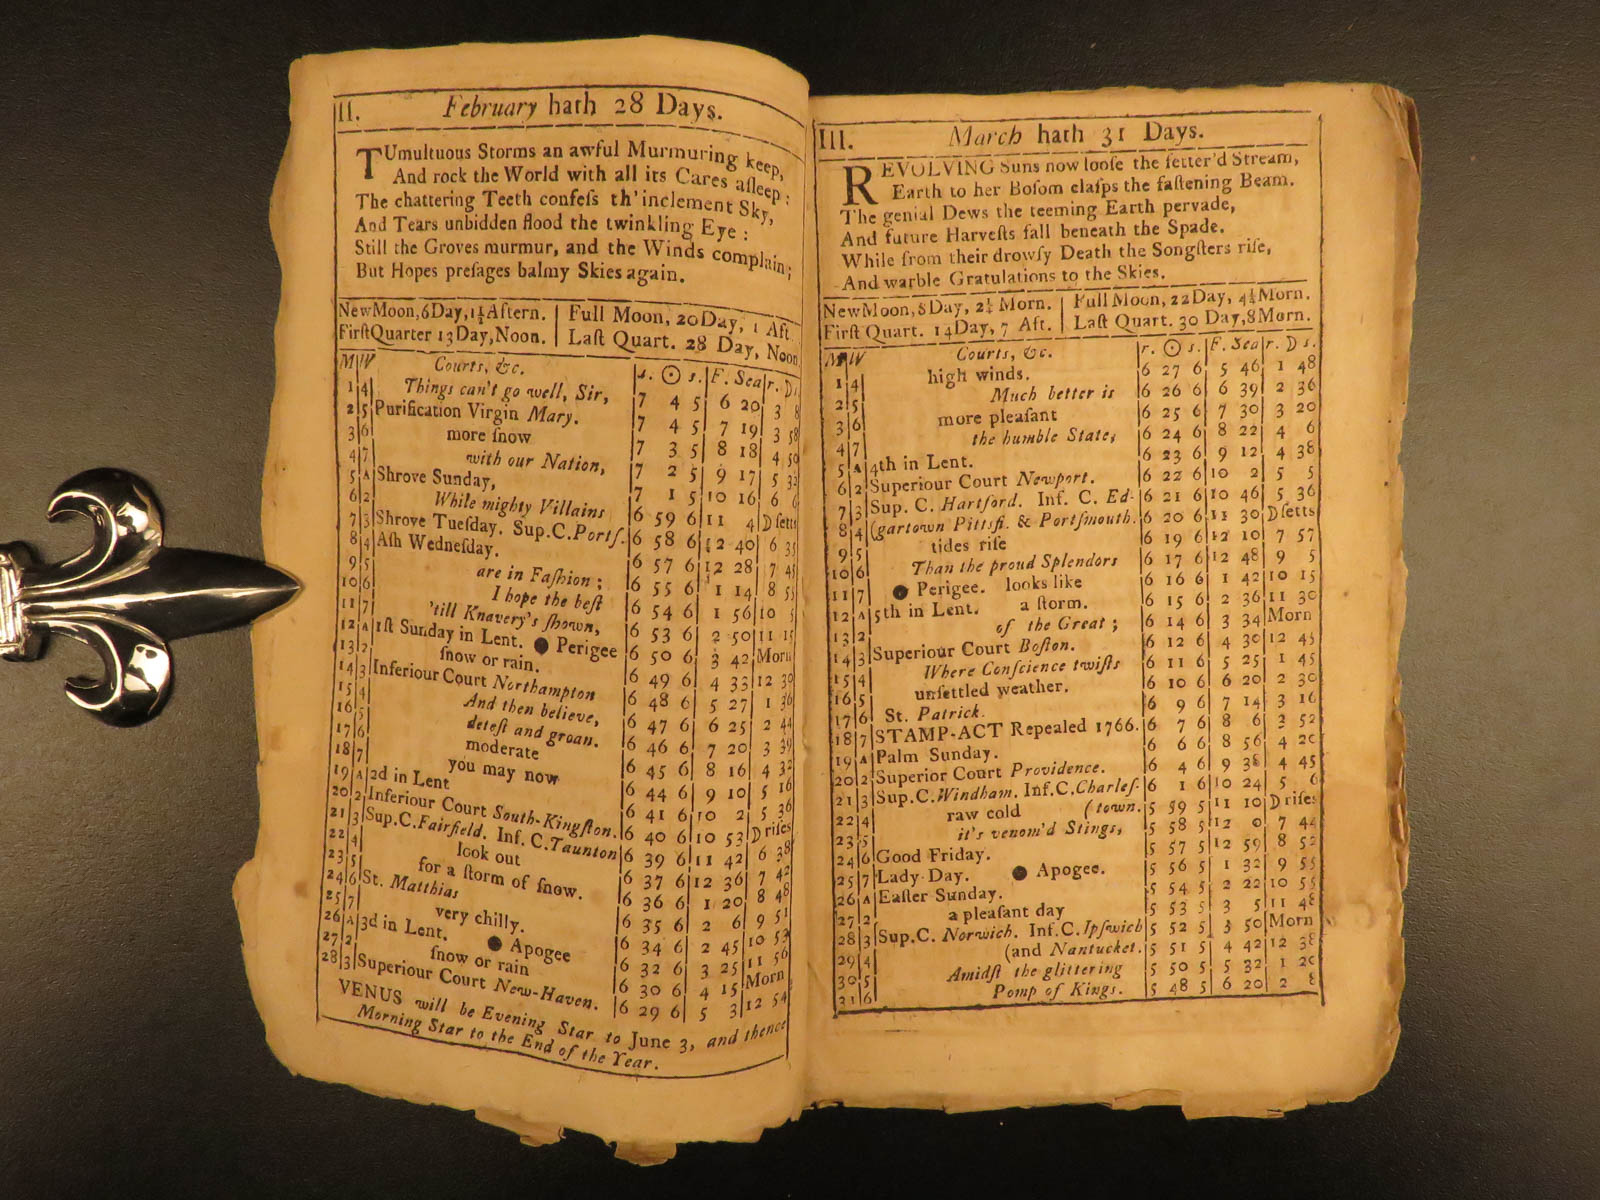 II. February hath 28 Days.
TUmultuous Storms an awful Murmuring keep,
And rock the World with all its Cares aſleep:
The chattering Teeth confeſs th' inclement Sky,
And Tears unbidden flood the twinkling Eye:
Still the Groves murmur, and the Winds complain;
But Hopes preſages balmy Skies again.
New Moon, 6 Day, 1½ Aftern. | Full Moon, 20 Day, 1 Aft.
Firſt Quarter 13 Day, Noon. | Laſt Quart. 28 Day, Noon
M|W Courts, &c. s. ☉ s. F. Sea r. D s
1 4 Things can't go well, Sir, 7 4 5 6 20 3 8
2 5 Purification Virgin Mary. 7 4 5 7 19 3 58
3 6 more ſnow 7 3 5 8 18 4 50
4 7 with our Nation, 7 2 5 9 17 5 32
5 A Shrove Sunday, 7 1 5 10 16 6 6
6 2 While mighty Villains 6 59 6 11 4 D ſetts
7 3 Shrove Tueſday. Sup.C.Portſ. 6 58 6 12 40 6 35
8 4 Aſh Wedneſday. 6 57 6 12 28 7 45
9 5 are in Faſhion; 6 55 6 1 14 8 55
10 6 I hope the beſt 6 54 6 1 56 10 5
11 7 'till Knavery's ſhown, 6 53 6 2 50 11 15
12 A 1ſt Sunday in Lent. ● Perigee 6 50 6 3 42 Morn
13 2 ſnow or rain. 6 49 6 4 33 12 30
14 3 Inferiour Court Northampton 6 48 6 5 27 1 36
15 4 And then believe, 6 47 6 6 25 2 44
16 5 deteſt and groan. 6 46 6 7 20 3 39
17 6 moderate 6 45 6 8 16 4 32
18 7 you may now 6 44 6 9 10 5 16
19 A 2d in Lent 6 41 6 10 2 5 36
20 2 Inferiour Court South-Kingſton. 6 40 6 10 53 D riſes
21 3 Sup.C.Fairfield. Inf. C.Taunton 6 39 6 11 42 6 38
22 4 look out 6 37 6 12 36 7 42
23 5 for a ſtorm of ſnow. 6 36 6 1 20 8 48
24 6 St. Matthias 6 35 6 2 6 9 51
25 7 very chilly. 6 34 6 2 45 10 53
26 A 3d in Lent. ● Apogee 6 32 6 3 25 11 56
27 2 ſnow or rain 6 30 6 4 15 Morn
28 3 Superiour Court New-Haven. 6 29 6 5 3 12 54
VENUS will be Evening Star to June 3, and thence
Morning Star to the End of the Year.
III. March hath 31 Days.
REVOLVING Suns now looſe the fetter'd Stream,
Earth to her Boſom claſps the faſtening Beam.
The genial Dews the teeming Earth pervade,
And future Harveſts fall beneath the Spade.
While from their drowſy Death the Songſters riſe,
And warble Gratulations to the Skies.
New Moon, 8 Day, 2¼ Morn. | Full Moon, 22 Day, 4¼ Morn.
Firſt Quart. 14 Day, 7 Aft. | Laſt Quart. 30 Day, 8 Morn.
M|W Courts, &c. r. ☉ s. F. Sea r. D s.
1 4 high winds. 6 27 6 5 46 1 48
2 5 Much better is 6 26 6 6 39 2 36
3 6 more pleaſant 6 25 6 7 30 3 20
4 7 the humble State, 6 24 6 8 22 4 6
5 A 4th in Lent. 6 23 6 9 12 4 38
6 2 Superiour Court Newport. 6 22 6 10 2 5 5
7 3 Sup. C. Hartford. Inf. C. Ed- 6 21 6 10 46 5 36
8 4 (gartown Pittsfi. & Portſmouth. 6 20 6 11 30 D ſetts
9 5 tides riſe 6 19 6 12 10 7 57
10 6 Than the proud Splendors 6 17 6 12 48 9 5
11 7 ● Perigee. looks like 6 16 6 1 42 10 15
12 A 5th in Lent. a ſtorm. 6 15 6 2 36 11 30
13 2 of the Great; 6 14 6 3 34 Morn
14 3 Superiour Court Boſton. 6 12 6 4 30 12 45
15 4 Where Conſcience twiſts 6 11 6 5 25 1 45
16 5 unſettled weather. 6 10 6 6 20 2 30
17 6 St. Patrick. 6 9 6 7 14 3 16
18 7 STAMP-ACT Repealed 1766. 6 7 6 8 6 3 52
19 A Palm Sunday. 6 6 6 8 56 4 20
20 2 Superior Court Providence. 6 4 6 9 38 4 45
21 3 Sup.C.Windham. Inf.C.Charleſ- 6 1 6 10 24 5 6
22 4 raw cold (town. 5 59 5 11 10 D riſes
23 5 it's venom'd Stings, 5 58 5 12 0 7 44
24 6 Good Friday. 5 57 5 12 59 8 52
25 7 Lady Day. ● Apogee. 5 56 5 1 32 9 55
26 A Eaſter Sunday. 5 54 5 2 22 10 55
27 2 a pleaſant day 5 53 5 3 5 11 48
28 3 Sup.C. Norwich. Inf.C.Ipſwich 5 52 5 3 50 Morn
29 4 (and Nantucket. 5 51 5 4 42 12 38
30 5 Amidſt the glittering 5 50 5 5 32 1 20
31 6 Pomp of Kings. 5 48 5 6 20 2 8